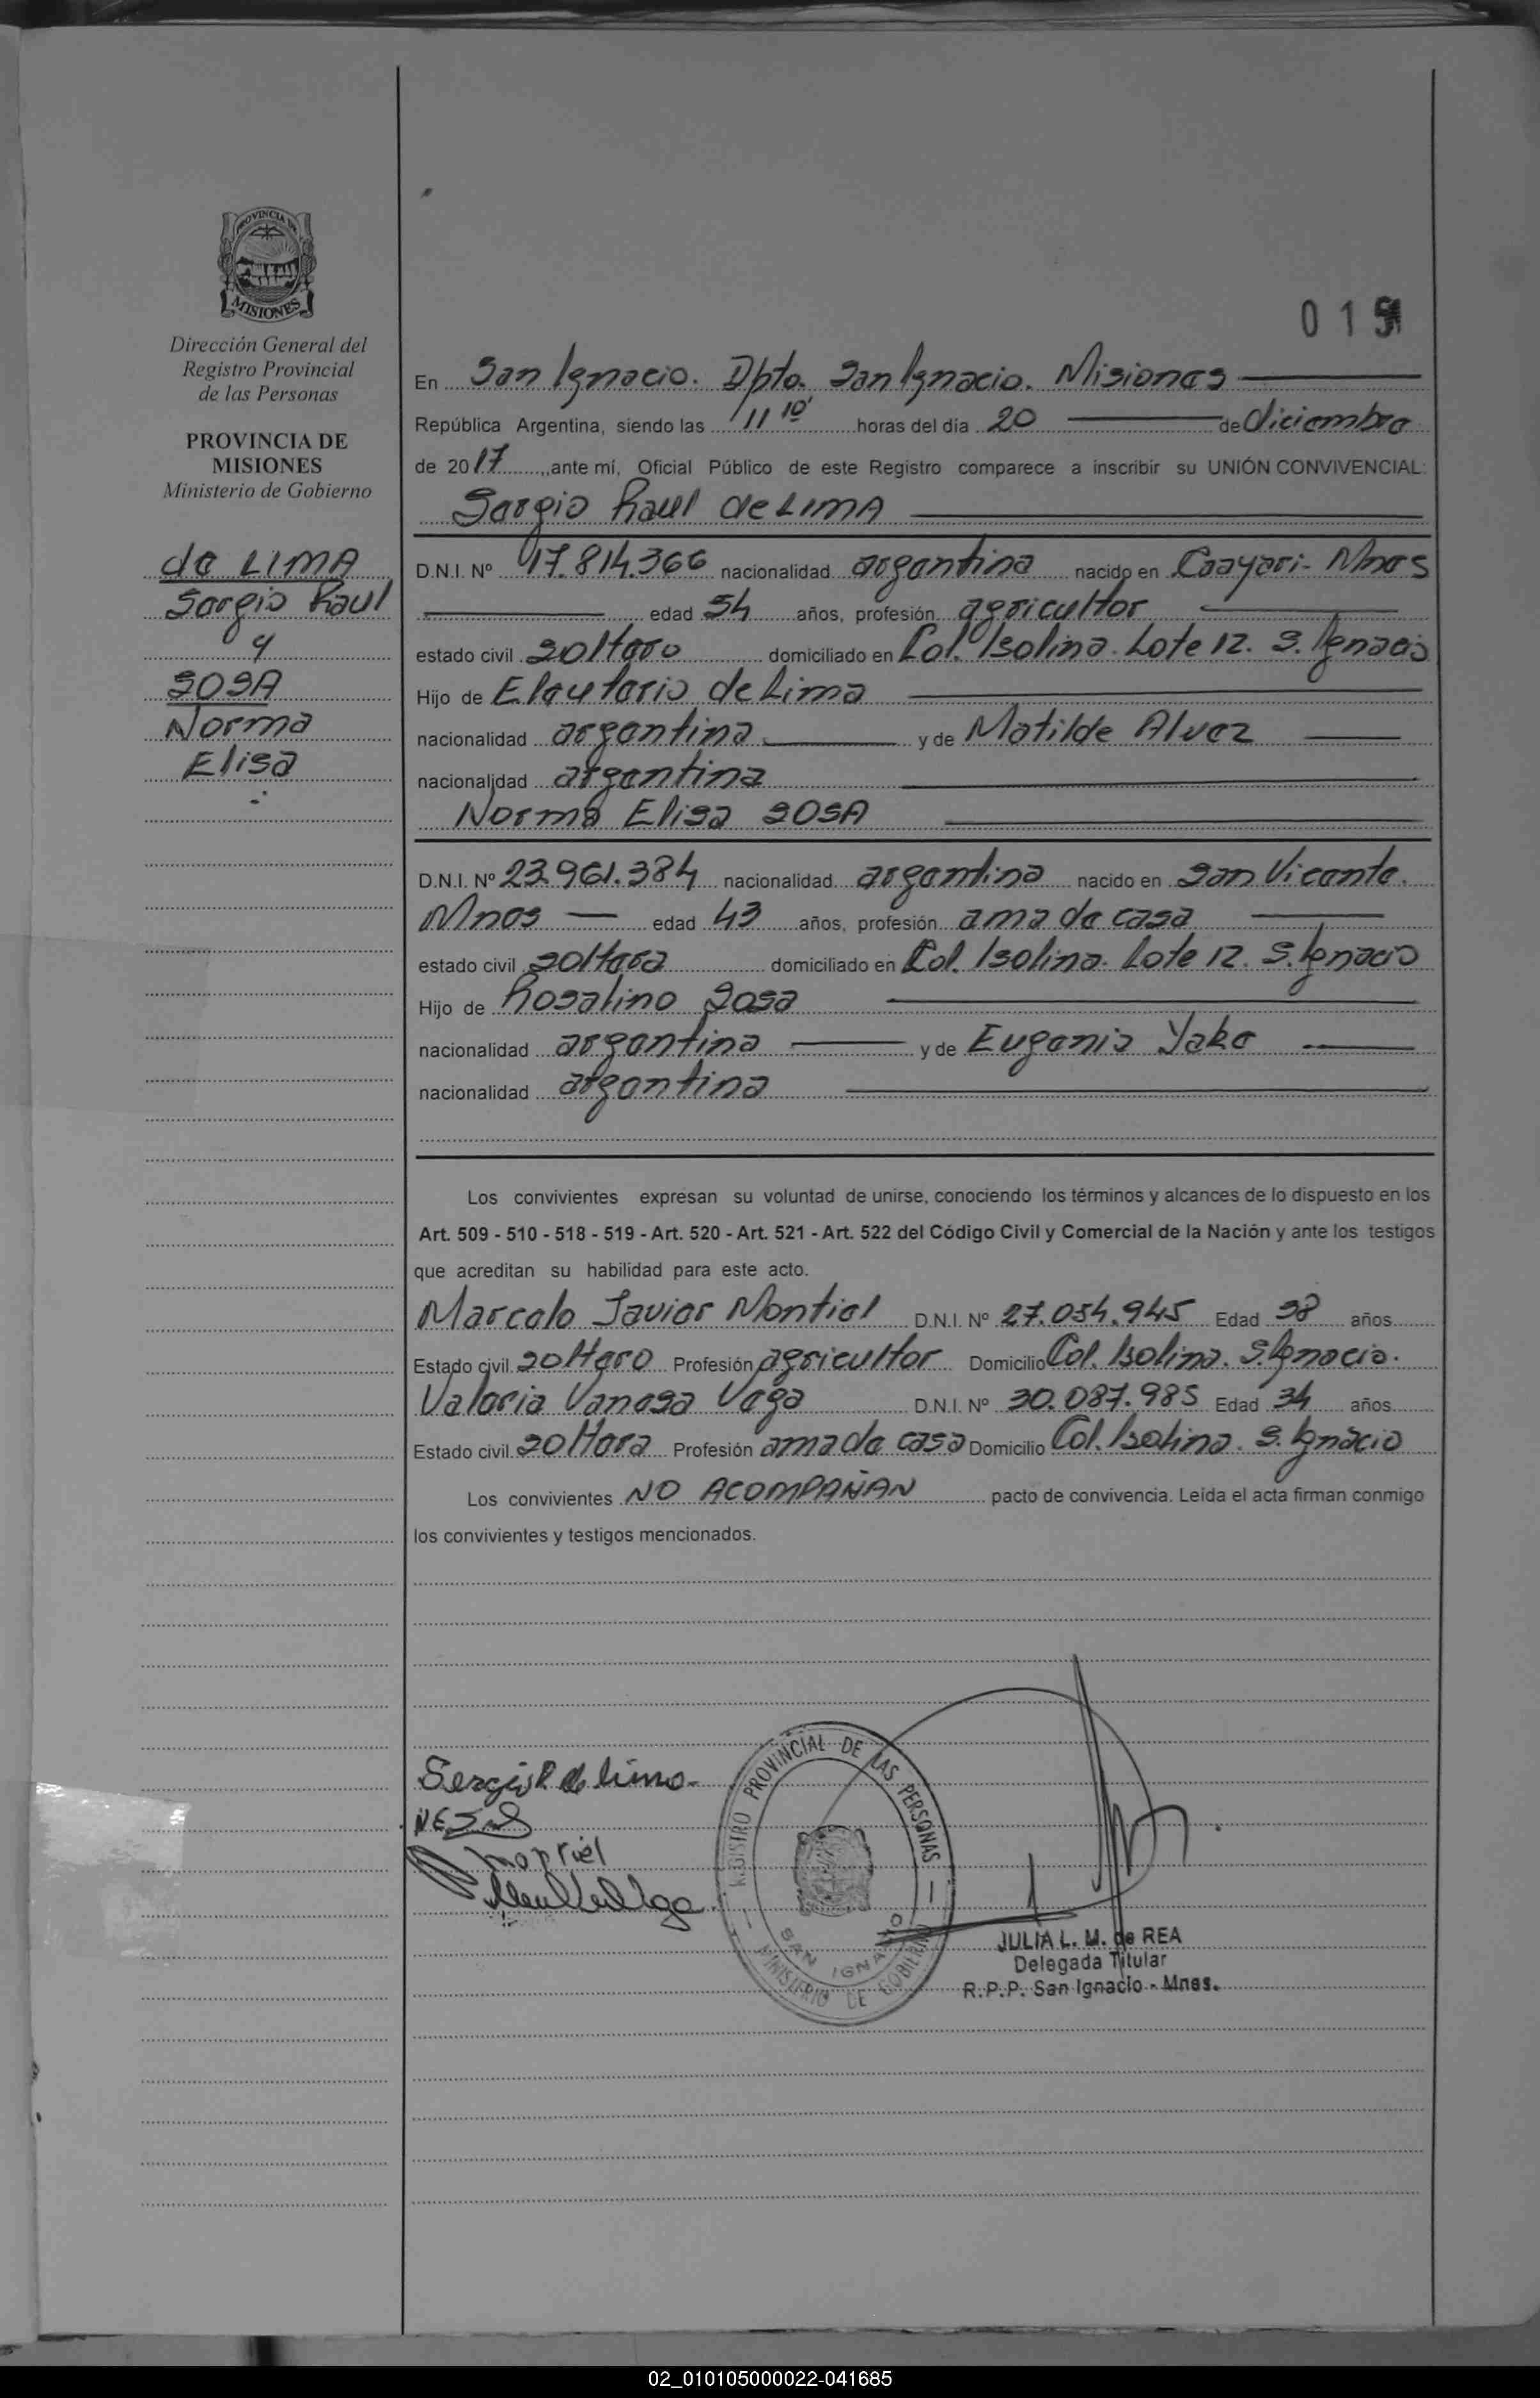 PROVINCIA DE
MISIONES
Dirección General del
Registro Provincial
de las Personas
PROVINCIA DE
MISIONES
Ministerio de Gobierno
de LIMA
Sergio Raul
y
SOSA
Norma
Elisa
0 1 9
En San Ignacio. Dpto. San Ignacio. Misiones
República Argentina, siendo las 11 10' horas del día 20 de diciembre
de 2017, ante mí, Oficial Público de este Registro comparece a inscribir su UNIÓN CONVIVENCIAL:
Sergio Raul de LIMA
D.N.I. Nº 17.814.366 nacionalidad argentina nacido en Caayari - Mnes
edad 54 años, profesión agricultor
estado civil soltero domiciliado en Col. Isolina. Lote 12. S. Ignacio
Hijo de Eleuterio de Lima
nacionalidad argentina y de Matilde Alvez
nacionalidad argentina
Norma Elisa SOSA
D.N.I. Nº 23.961.384 nacionalidad argentina nacido en San Vicente.
Mnes edad 43 años, profesión ama de casa
estado civil soltera domiciliado en Col. Isolina. Lote 12. S. Ignacio
Hijo de Rosalino Sosa
nacionalidad argentina y de Eugenia Yake
nacionalidad argentina
Los convivientes expresan su voluntad de unirse, conociendo los términos y alcances de lo dispuesto en los
Art. 509 - 510 - 518 - 519 - Art. 520 - Art. 521 - Art. 522 del Código Civil y Comercial de la Nación y ante los testigos
que acreditan su habilidad para este acto.
Marcelo Javier Montiel D.N.I. Nº 27.054.945 Edad 38 años
Estado civil soltero Profesión agricultor Domicilio Col. Isolina. S. Ignacio.
Valeria Vanesa Vega D.N.I. Nº 30.087.985 Edad 34 años
Estado civil soltera Profesión ama de casa Domicilio Col. Isolina. S. Ignacio
Los convivientes NO ACOMPAÑAN pacto de convivencia. Leída el acta firman conmigo
los convivientes y testigos mencionados.
Sergio R de Lima
REGISTRO PROVINCIAL DE LAS PERSONAS
SAN IGNACIO
MINISTERIO DE GOBIERNO
JULIA L. M. de REA
Delegada Titular
R.P.P. San Ignacio - Mnes.
02_010105000022-041685